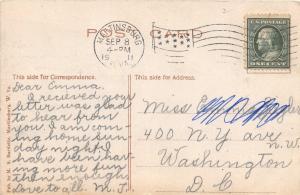 POST CARD
MARTINSBURG
SEP 8
4-PM
1911
W. VA.
U.S. POSTAGE
ONE CENT
This side for Correspondence.
This side for the Address.
Dear Emma.
I received your
letter was glad
to hear from
you. I am com
ing home, Sun
day night. I
have been hav
ing more fun
then enough
Love to all. M. T.
Miss
400 N.Y. ave
N.W.
Washington
D. C